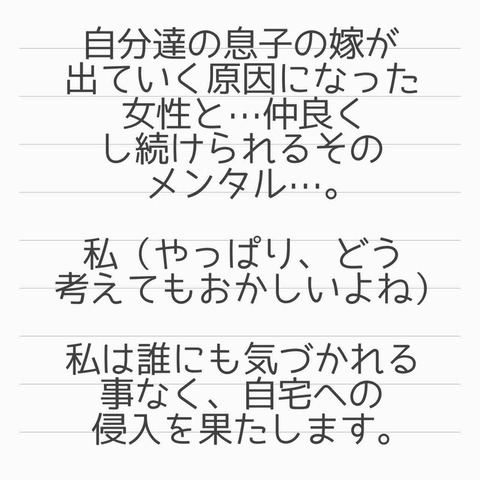 自分達の息子の嫁が
出ていく原因になった
女性と…仲良く
し続けられるその
メンタル…。
私（やっぱり、どう
考えてもおかしいよね）
私は誰にも気づかれる
事なく、自宅への
侵入を果たします。